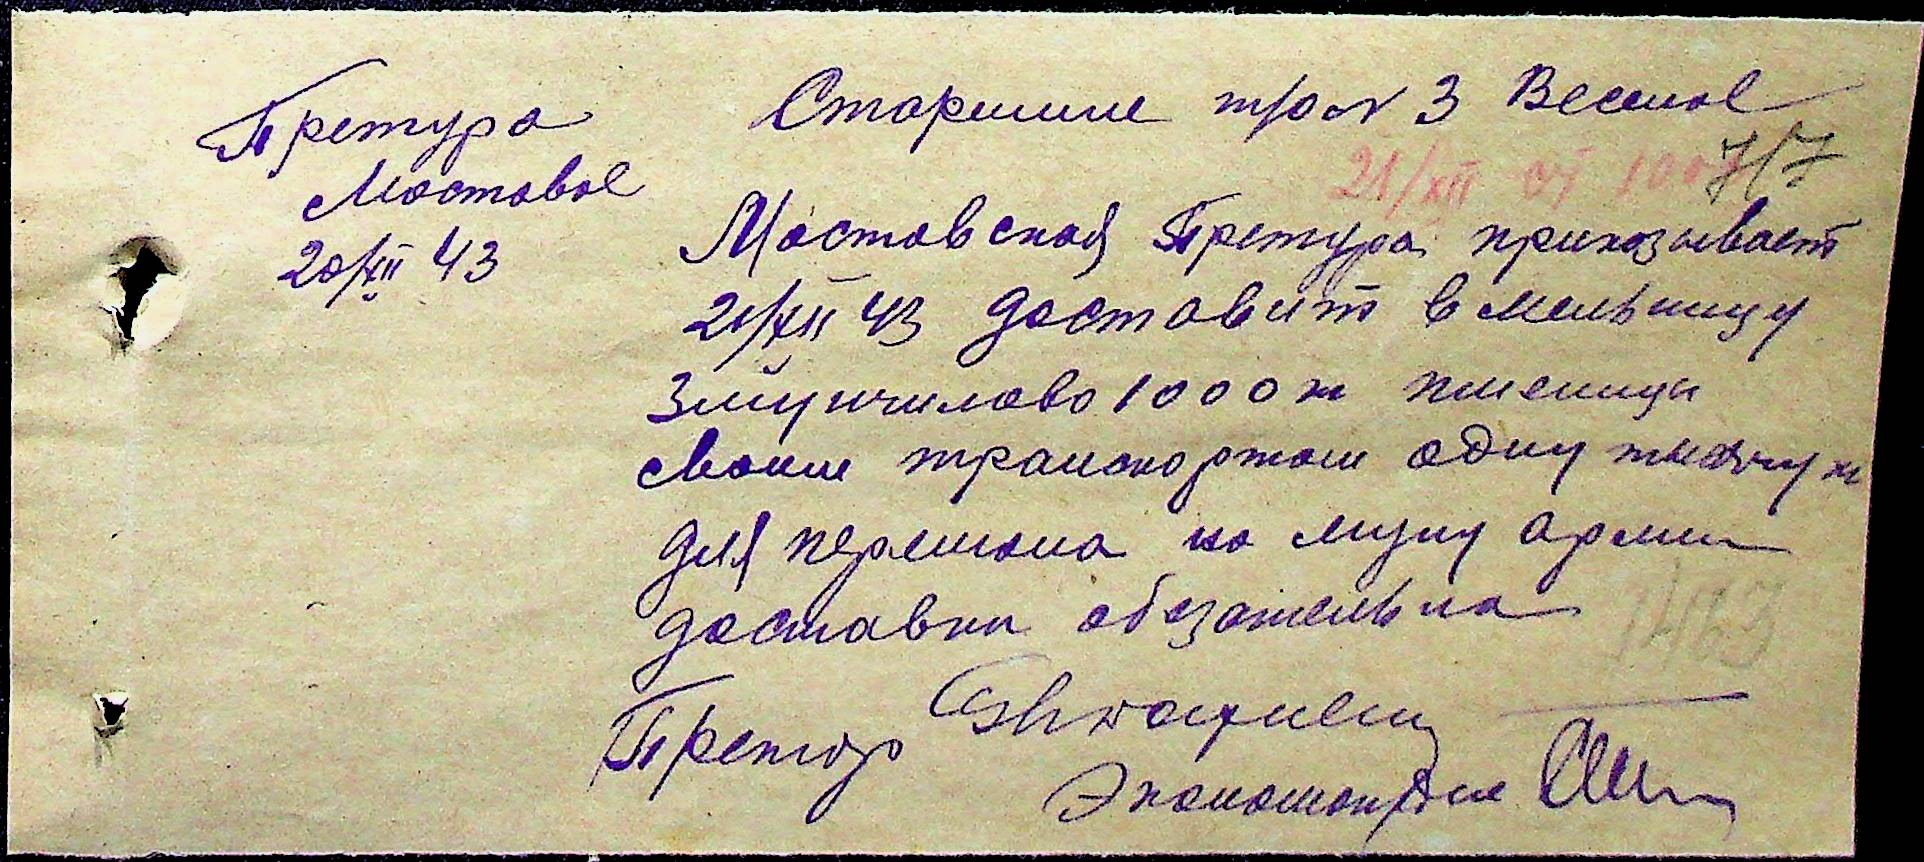 Претура
Мостовое
20/XII 43
Старшине т/о № 3 Веселое
21/XII
7/7
Мостовская Претура приказывает
21/XII 43 доставить в мельницу
1000 п пшеницы
своим транспортом одну тысячу п
для перемола на муку армии
доставка обезательна
Претор
1469